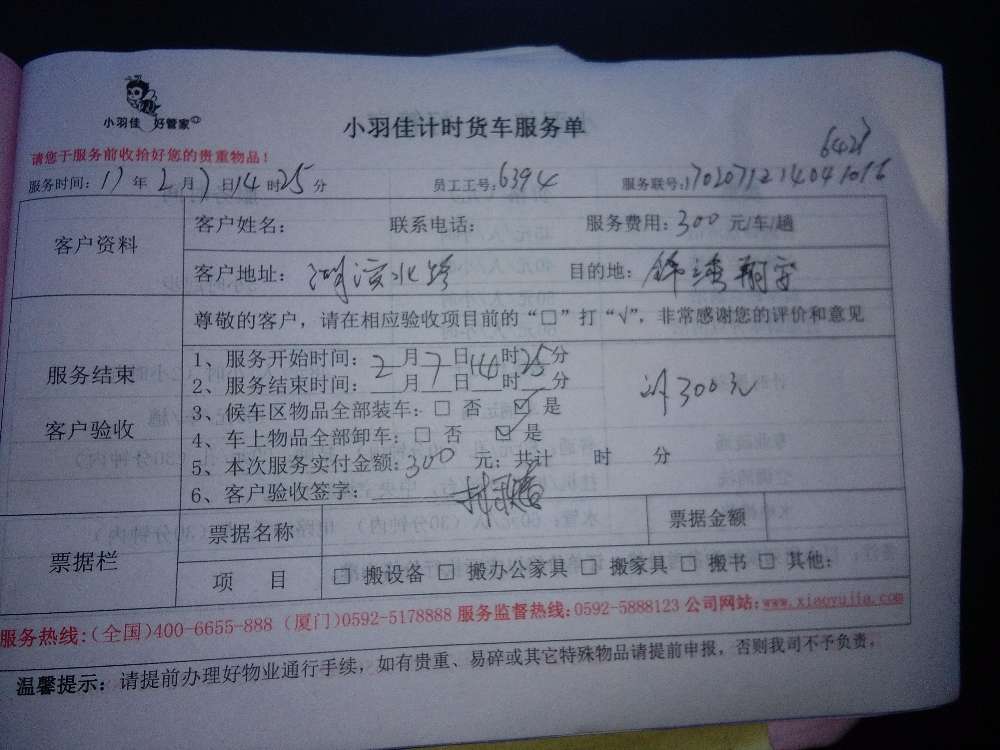 小羽佳 好管家
小羽佳计时货车服务单
请您于服务前收拾好您的贵重物品！
服务时间：17 年 2 月 7 日 14 时 25 分 员工工号：6394 服务联号：
客户资料
客户姓名： 联系电话： 服务费用：300 元/车/趟
客户地址： 目的地：
尊敬的客户，请在相应验收项目前的“□”打“√”，非常感谢您的评价和意见
服务结束
客户验收
1、服务开始时间：2 月 7 日 14 时 25 分
2、服务结束时间： 月 日 时 分
3、候车区物品全部装车：□ 否 ☑ 是
4、车上物品全部卸车：□ 否 ☑ 是
5、本次服务实付金额：300 元；共计 时 分
6、客户验收签字：
300元
票据栏
票据名称 票据金额
项 目 □ 搬设备 □ 搬办公家具 □ 搬家具 □ 搬书 □ 其他：
服务热线：(全国)400-6655-888 (厦门)0592-5178888 服务监督热线：0592-5888123 公司网站：www.xiaoyujia.com
温馨提示：请提前办理好物业通行手续，如有贵重、易碎或其它特殊物品请提前申报，否则我司不予负责。